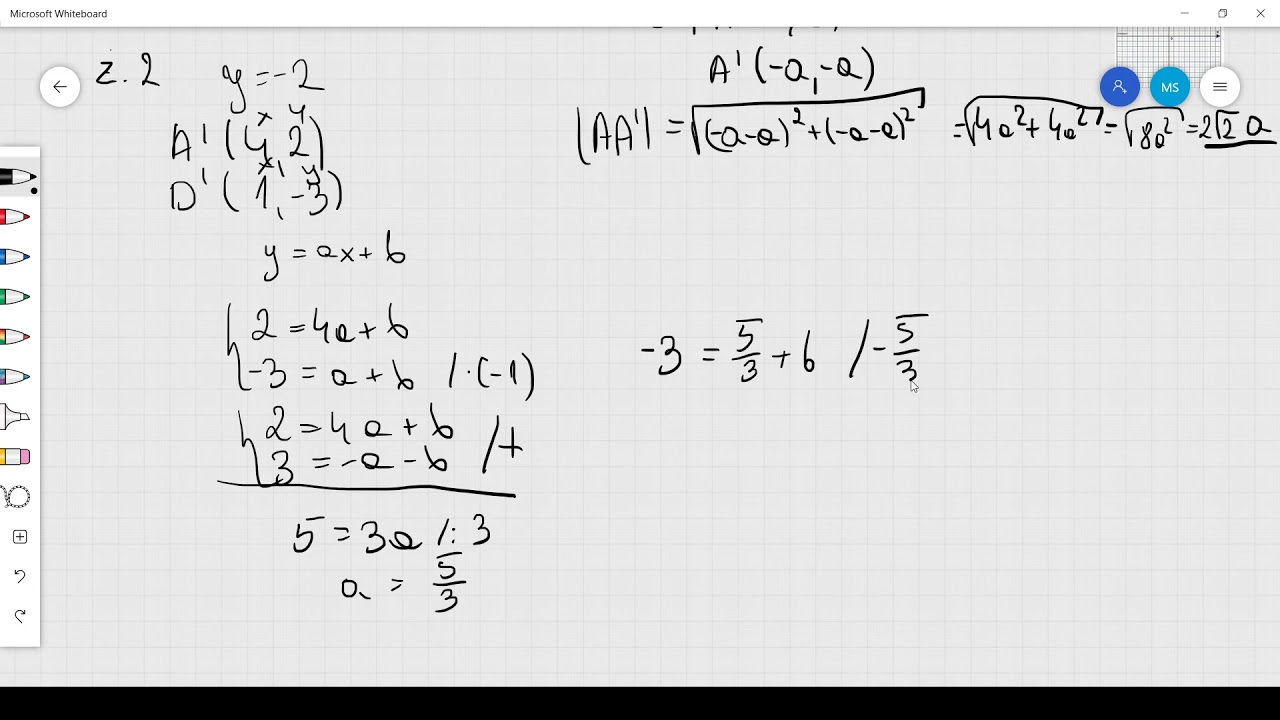 Microsoft Whiteboard
z. 2
y = -2
x y
A' (4, 2)
x, y
D' (1, -3)
y = ax + b
2 = 4a + b
-3 = a + b /·(-1)
2 = 4a + b /+
3 = -a - b
5 = 3a /: 3
a = 5/3
A' (-a, -a)
|AA'| = √(-a-a)² + (-a-a)² = √4a² + 4a² = √8a² = 2√2 a
MS
-3 = 5/3 + b /- 5/3